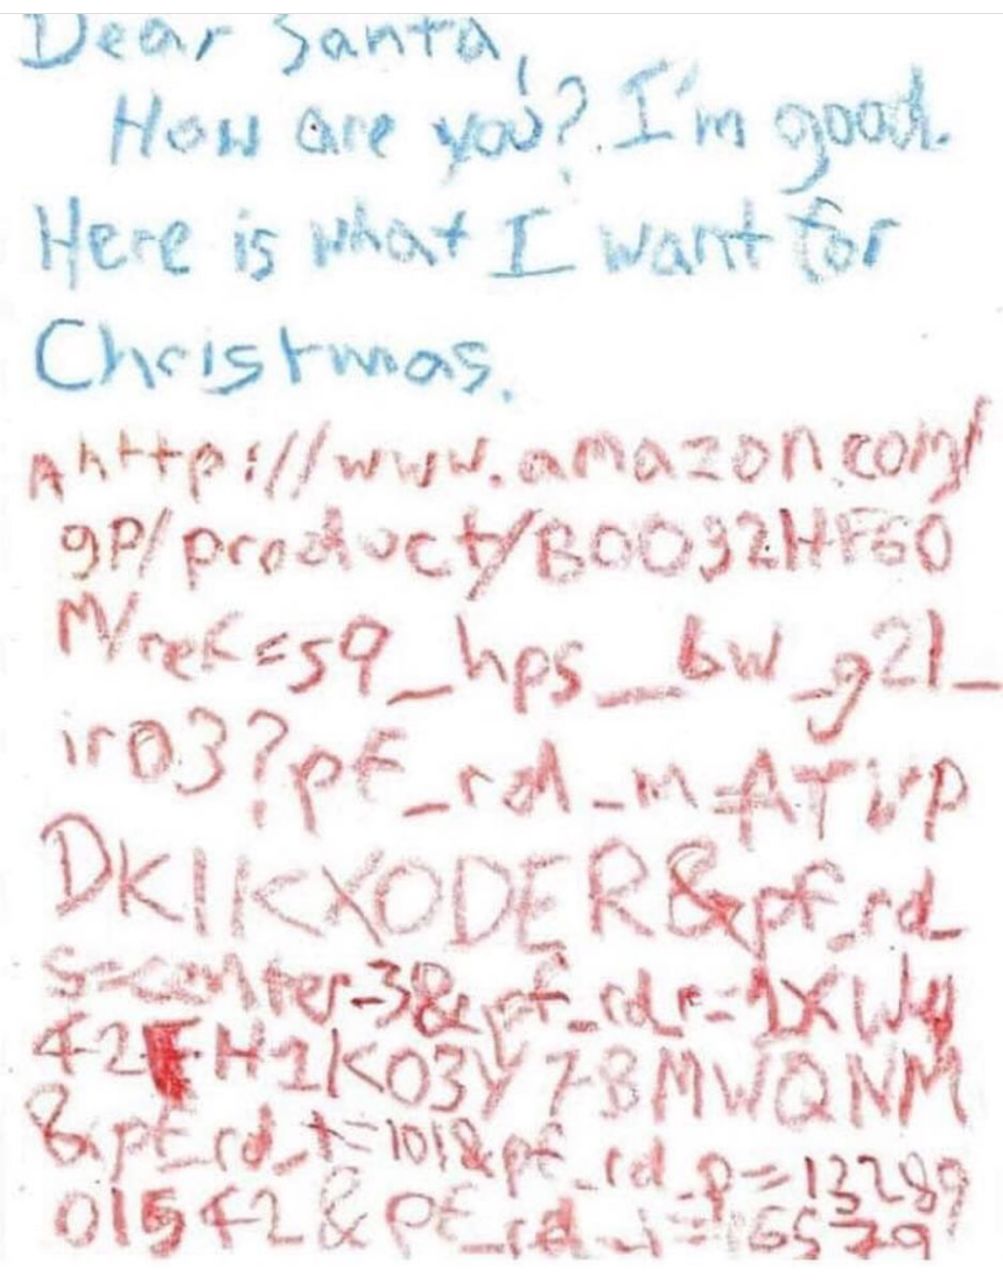 Dear Santa,
How are you? I'm good.
Here is what I want for
Christmas.
A http://www.amazon.com/
gp/product/B0032HF60
M/ref=s9_hps_bw_g21_
ir03?pf_rd_m=ATVP
DKIKX0DER&pf_rd_
s=center-3&pf_rd_r=1XWW
42FH1K03Y78MWQNM
&pf_rd_t=101&pf_rd_p=13289
01542&pf_rd_i=16579